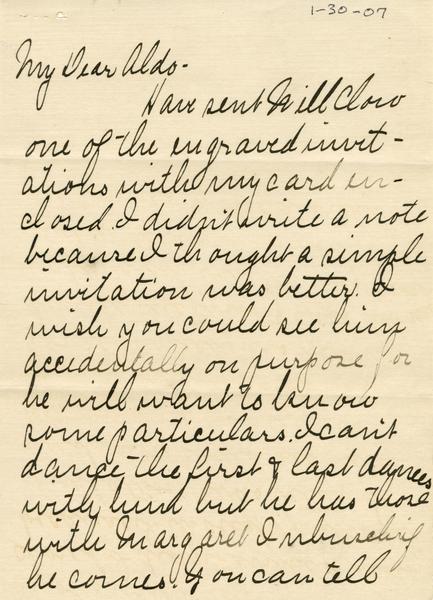 1-30-07
My Dear Aldo-
Have sent Will Clow
one of the engraved invit-
ations with my card en-
closed. I didn't write a note
because I thought a simple
invitation was better. I
wish you could see him
accidentally on purpose for
he will want to know
some particulars. I can't
dance the first & last dances
with him but he has those
with Margaret
he comes. You can tell